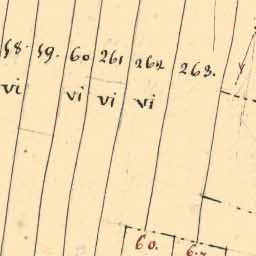 58. 59. 60 261 262 263.
vi vi vi vi
60.